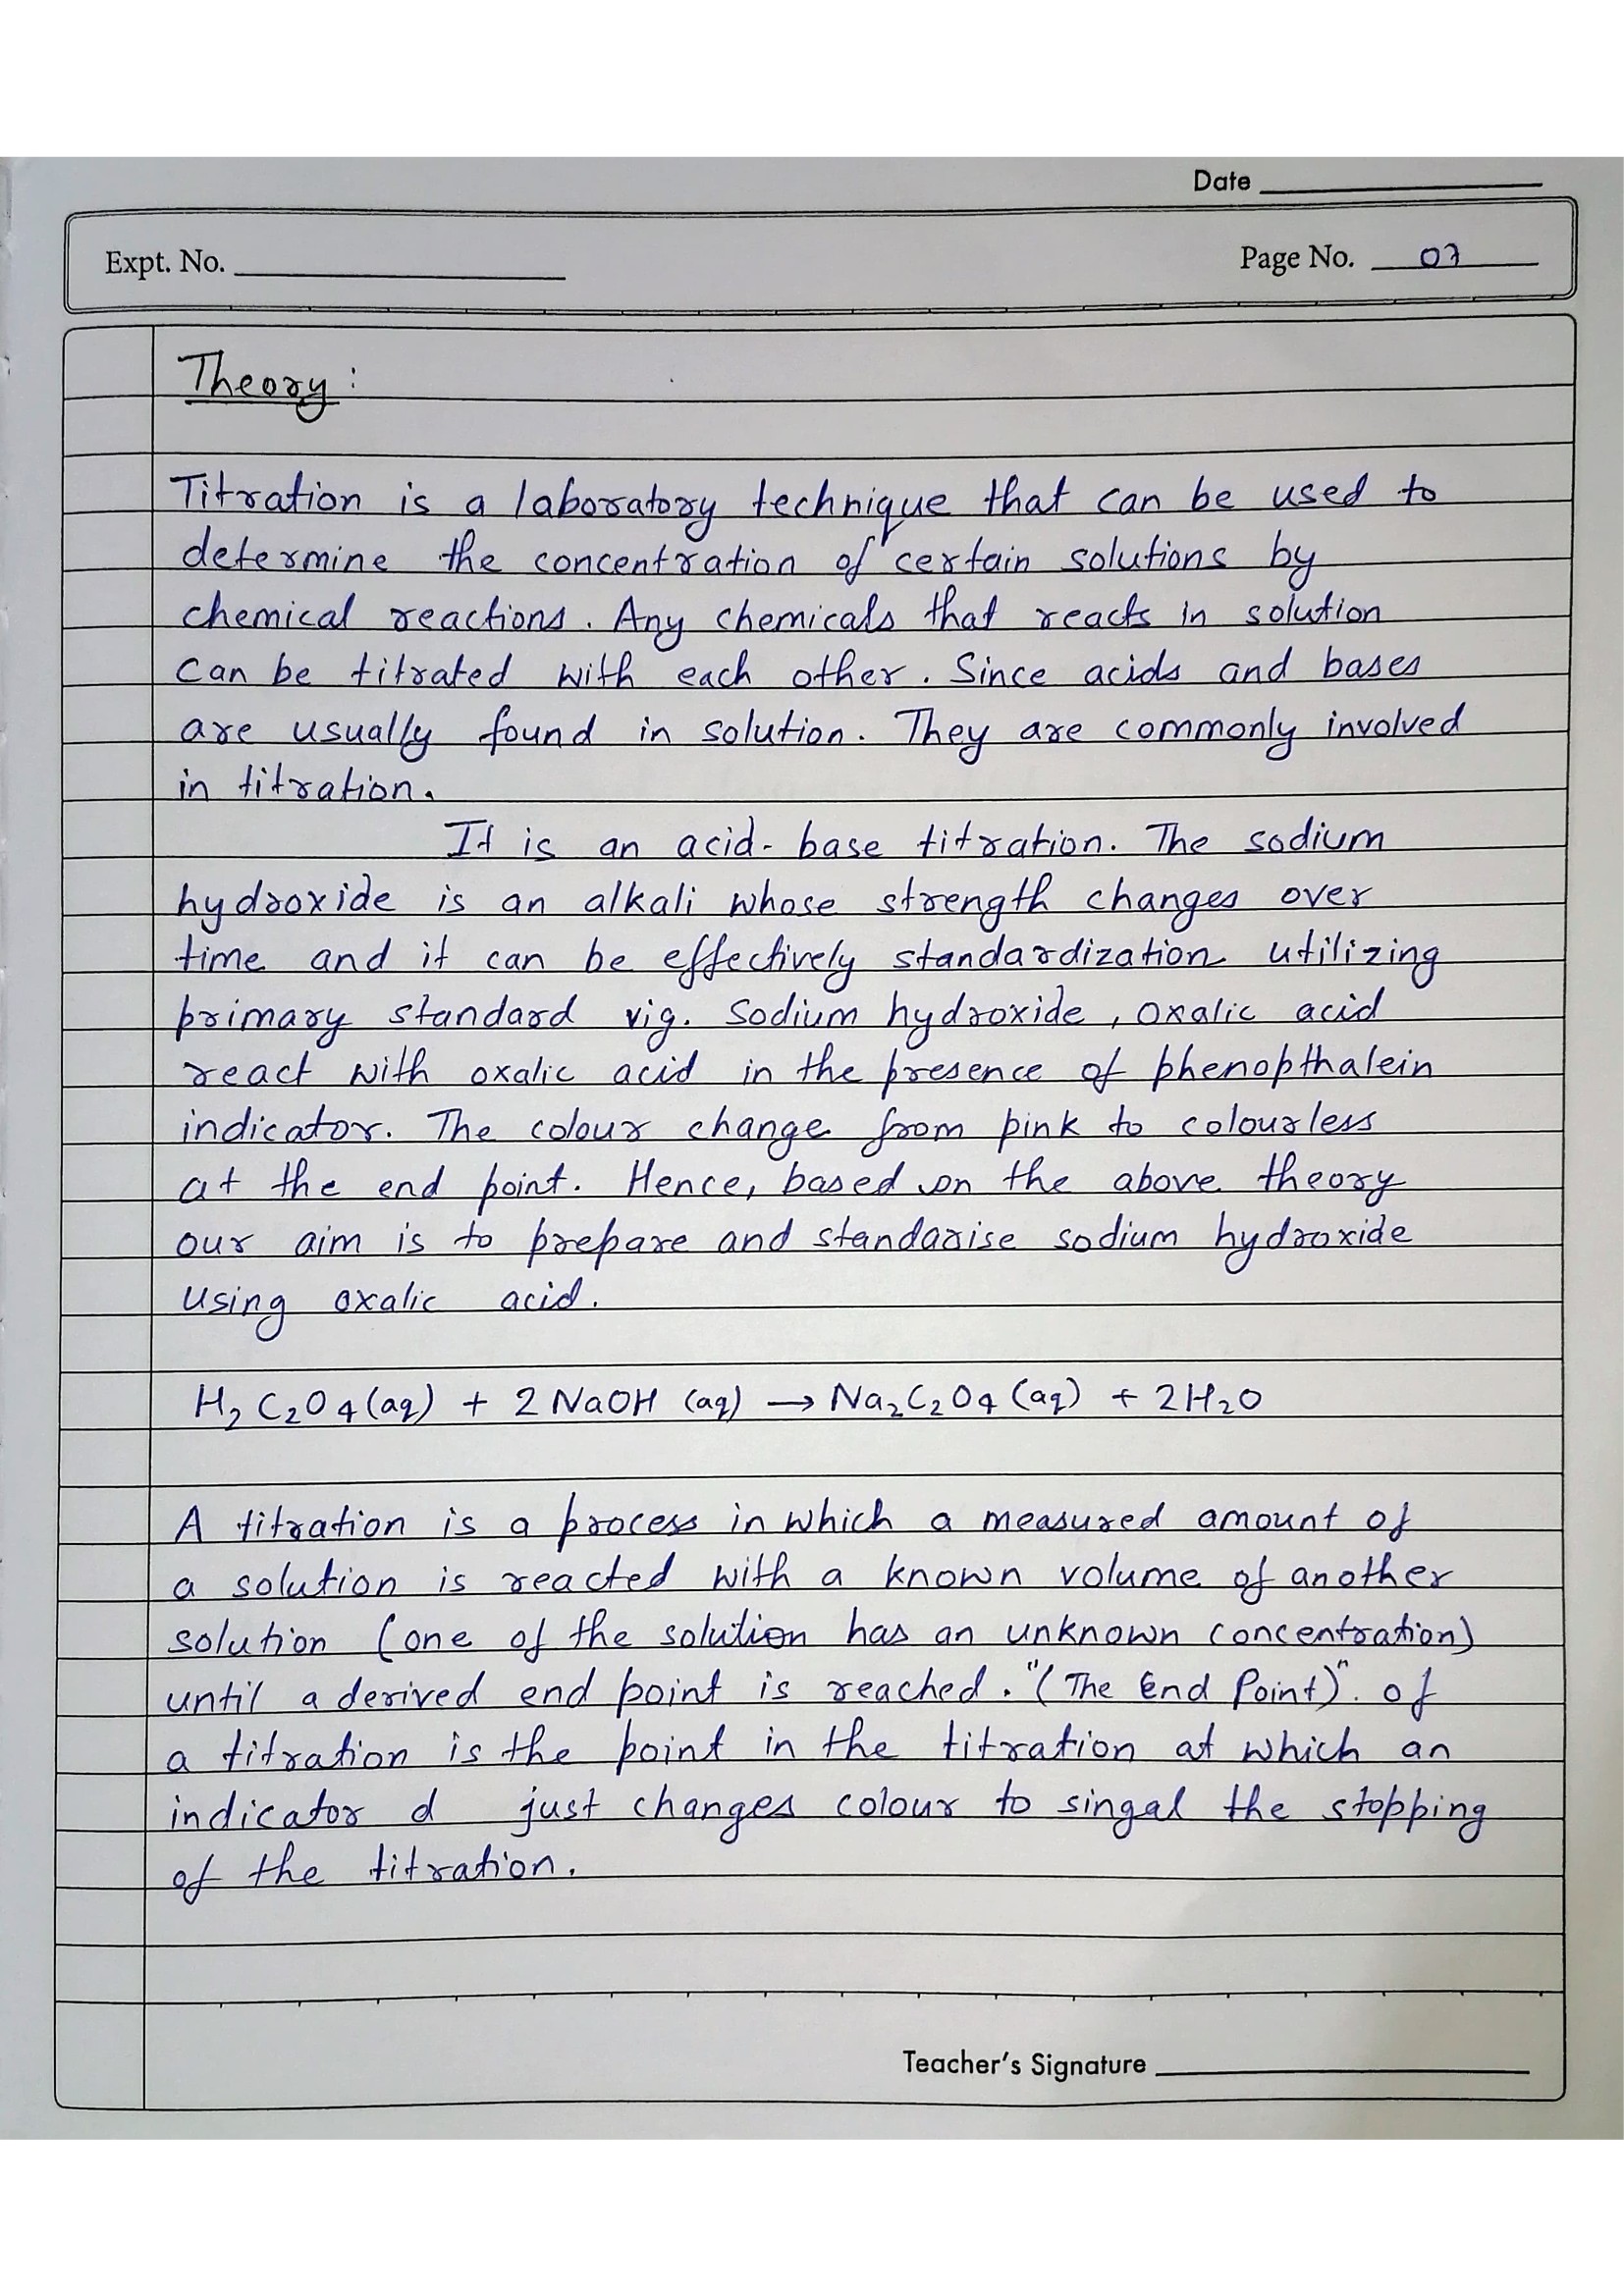 Date
Expt. No.
Page No. 07
Theory:
Titration is a laboratory technique that can be used to
determine the concentration of certain solutions by
chemical reactions. Any chemicals that reacts in solution
can be titrated with each other. Since acids and bases
are usually found in solution. They are commonly involved
in titration.
It is an acid-base titration. The sodium
hydroxide is an alkali whose strength changes over
time and it can be effectively standardization utilizing
primary standard vig. Sodium hydroxide, oxalic acid
react with oxalic acid in the presence of phenopthalein
indicator. The colour change from pink to colourless
at the end point. Hence, based on the above theory
our aim is to prepare and standarise sodium hydroxide
using oxalic acid.
H₂C₂O₄(aq) + 2NaOH (aq) → Na₂C₂O₄ (aq) + 2H₂O
A titration is a process in which a measured amount of
a solution is reacted with a known volume of another
solution (one of the solution has an unknown concentration)
until a derived end point is reached. "(The End Point)". of
a titration is the point in the titration at which an
indicator d just changes colour to singal the stopping
of the titration.
Teacher's Signature